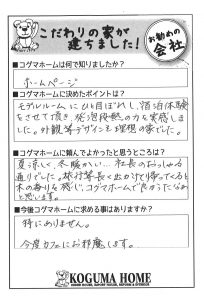 こだわりの家が
建ちました!
お勧めの
会社
■コグマホームは何で知りましたか?
ホームページ
■コグマホームに決めたポイントは?
モデルルームにひと目ぼれし、宿泊体験
をさせて頂き、発泡断熱の力を実感しま
した。外観等デザインも理想の家でした。
■コグマホームに頼んでよかったと思うところは?
夏涼しく、冬暖かい… 社長のおっしゃる
通りでした。旅行等長く出かけて帰ってくると
木の香りを感じ、コグマホームで良かったなぁ
と思います。
■今後コグマホームに求める事はありますか?
特にありません。
今度カフェにお邪魔します。
KOGUMA HOME